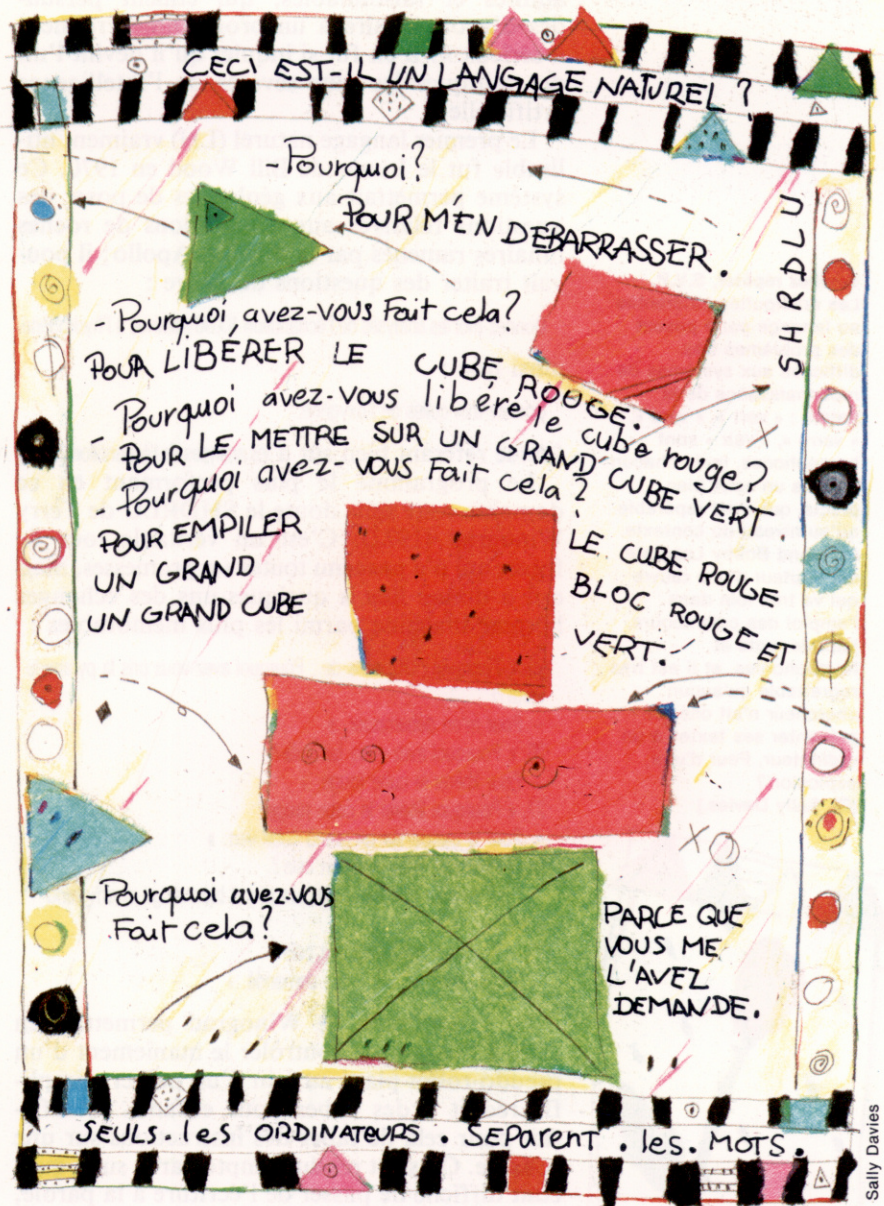 CECI EST-IL UN LANGAGE NATUREL ?
- Pourquoi?
POUR M'EN DEBARRASSER.
SHRDLU
- Pourquoi avez-vous Fait cela?
POUR LIBÉRER LE CUBE ROUGE.
- Pourquoi avez-vous libéré le cube rouge?
POUR LE METTRE SUR UN GRAND CUBE VERT.
- Pourquoi avez-vous Fait cela?
POUR EMPILER LE CUBE ROUGE
UN GRAND BLOC ROUGE ET
UN GRAND CUBE VERT.
- Pourquoi avez-vous
Fait cela?
PARCE QUE
VOUS ME
L'AVEZ
DEMANDE.
SEULS. les ORDINATEURS. SEPARENT. les. MOTS.
Sally Davies